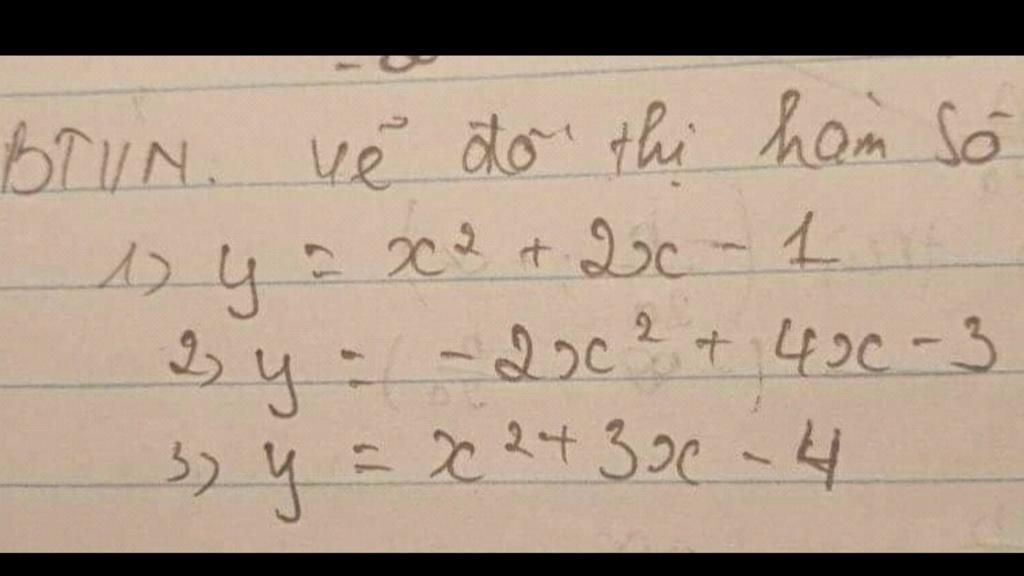 BTVN. Vẽ đồ thị hàm số
1) y = x² + 2x - 1
2) y = -2x² + 4x - 3
3) y = x² + 3x - 4